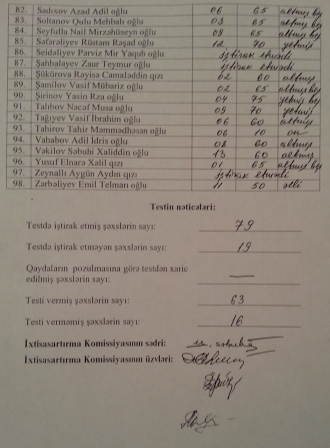 82. Sadıxov Azad Adil oğlu 06 65 altmış beş
83. Soltanov Qulu Mehbalı oğlu 03 65 altmış beş
84. Seyfulla Nail Mirzəhüseyn oğlu 09 65 altmış beş
85. Səfərəliyev Rüstəm Rəşad oğlu 12 70 yetmiş
86. Seidaliyev Pərviz Mir Yaqub oğlu iştirak etmədi
87. Şahbalayev Zaur Teymur oğlu iştirak etmədi
88. Şükürova Rəyisə Camaləddin qızı 02 60 altmış
89. Şamilov Vasif Mübariz oğlu 02 65 altmış beş
90. Şirinov Yasin Rza oğlu 04 75 yetmiş beş
91. Talıbov Nəcəf Musa oğlu 09 70 yetmiş
92. Tağıyev Vasif İbrahim oğlu 06 60 altmış
93. Tahirov Tahir Məmmədhəsən oğlu 06 10 on
94. Vahabov Adil İdris oğlu 08 60 altmış
95. Vəkilov Səbuhi Xaliddin oğlu 13 60 altmış
96. Yusuf Elnarə Xəlil qızı 01 65 altmış beş
97. Zeynallı Aygün Aydın qızı iştirak etmədi
98. Zərbəliyev Emil Telman oğlu 11 50 əlli
Testin nəticələri:
Testdə iştirak etmiş şəxslərin sayı: 79
Testdə iştirak etməyən şəxslərin sayı: 19
Qaydaların pozulmasına görə testdən xaric
edilmiş şəxslərin sayı: —
Testi vermiş şəxslərin sayı: 63
Testi verməmiş şəxslərin sayı: 16
İxtisasartırma Komissiyasının sədri:
İxtisasartırma Komissiyasının üzvləri: